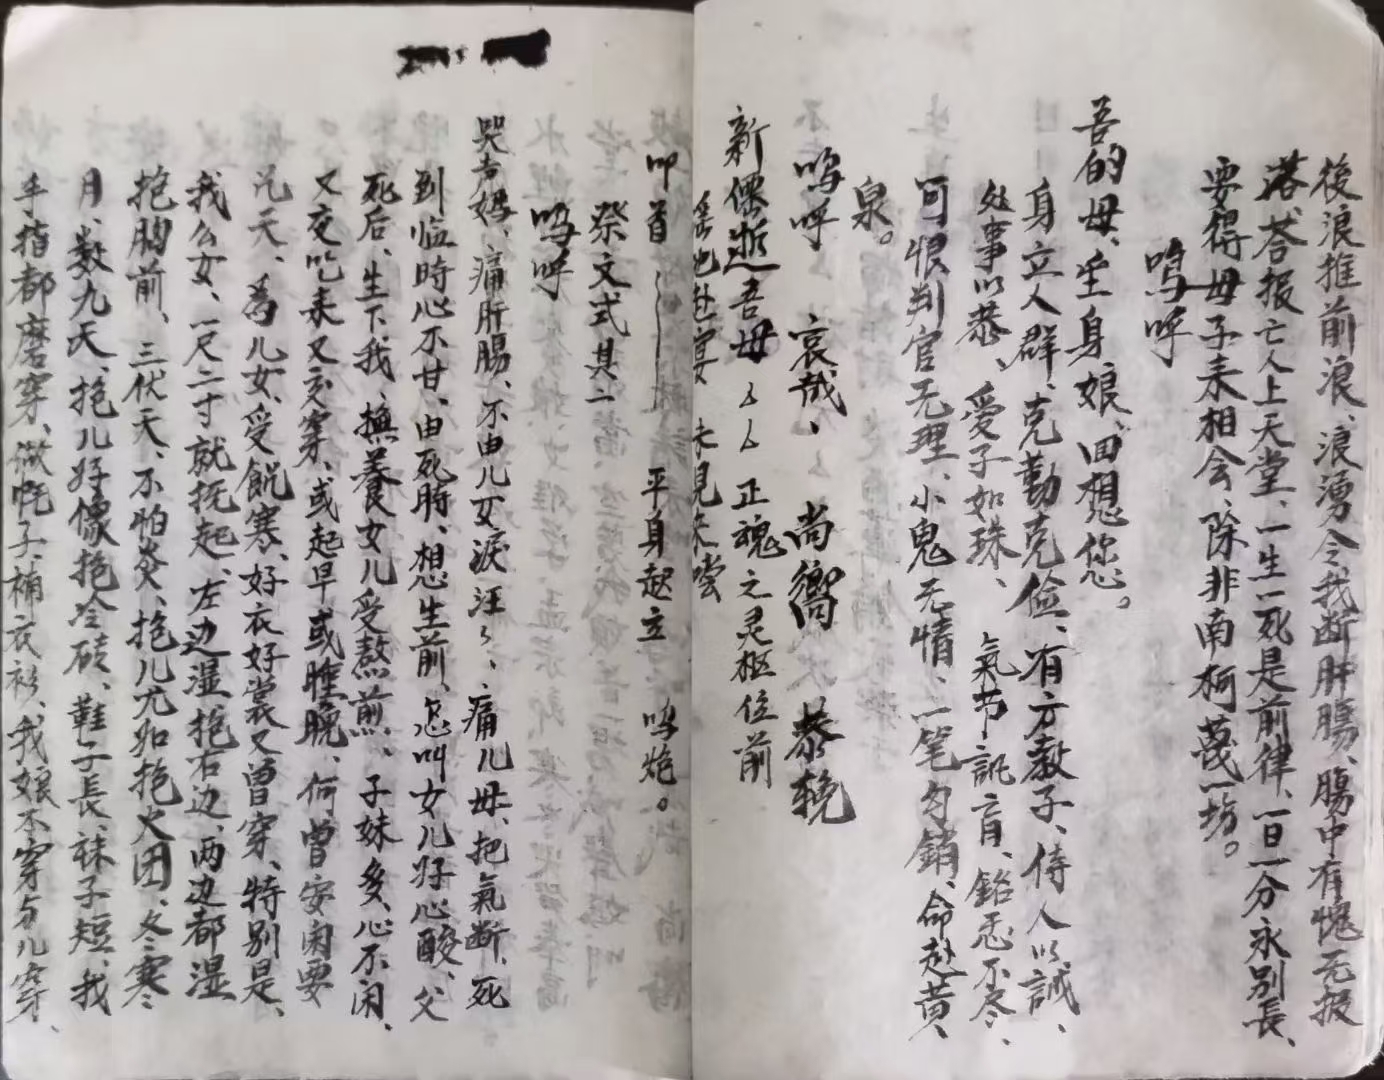 後浪推前浪、浪湧令我断肝腸、腸中有愧无报
答报亡人上天堂、一生一死是前律、一旦一分永别長、
要得母子来相会、除非南柯夢一場。
嗚呼
吾的母、生身娘、回想您。
身立人群、克勤克儉、有方教子、侍人以誠、
处事以恭、愛子如珠、氣节 言、 不尽、
可恨判官无理、小鬼无情、一笔勾銷、命赴黄
泉。
嗚呼 哀哉、尚嚮 恭輓
新 逝吾母ㄥㄥ正魂之灵柩位前
赴宴 未見来嚐
叩首 平身起立 鸣炮。
祭文式其二
嗚呼
哭声媽、痛肝腸、不由儿女淚汪ミ、痛儿母、把氣断、死
到临時心不甘、由死時、想生前、怎叫女儿好心酸、父
死后、生下我、撫養女儿受熬煎、子妹多、心不闲、
又要吃来又要穿、或起早或睡晚、何曾安闲要
几天、為儿女、受飢寒、好衣好裳又曾穿、特别是、
我么女、一尺二寸就抚起、左边湿抱右边、两边都湿
抱胸前、三伏天、不怕炎、抱儿尤如抱火团、冬寒
月、数九天、抱儿好像抱冷砖、鞋子長、袜子短、我
手指都磨穿、做 子、補衣衫、我娘不穿与儿穿、